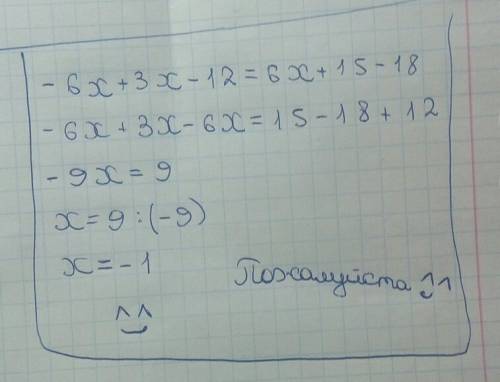 - 6x + 3x - 12 = 6x + 15 - 18
- 6x + 3x - 6x = 15 - 18 + 12
- 9x = 9
x = 9 : (-9)
x = - 1
Пожалуйста ^^
^^